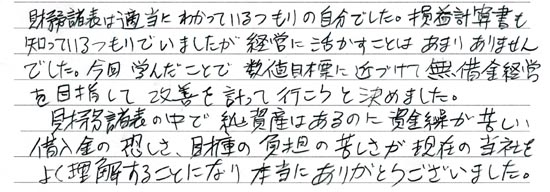 財務諸表は適当にわかっているつもりの自分でした。損益計算書も
知っているつもりでいましたが経営に活かすことはあまりありません
でした。今回学んだことで数値目標に近づけて無借金経営
を目指して改善を計って行こうと決めました。
財務諸表の中で純資産はあるのに資金繰が苦しい
借入金の恐しさ、財庫の負担の苦しさが現在の当社を
よく理解することになり本当にありがとうございました。